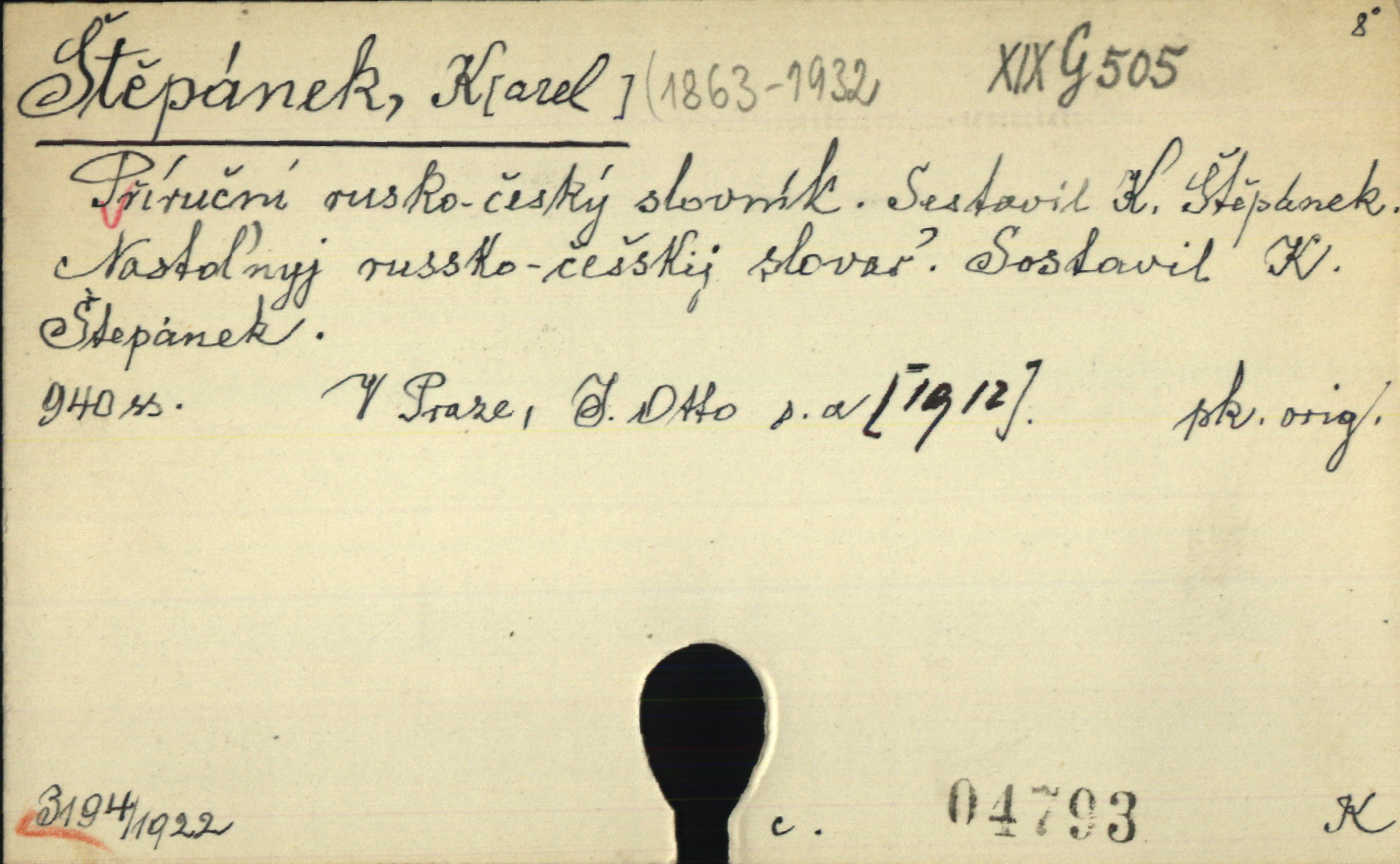 8°
Štěpánek, K[arel] (1863-1932 XIX G 505
Příruční rusko-český slovník. Sestavil K. Štěpánek.
Nastoľnyj russko-češskij slovař. Sostavil K.
Štěpánek.
940 ss. V Praze, J. Otto s. a [1912]. pk. orig.
3194/1922 c. 04793 K